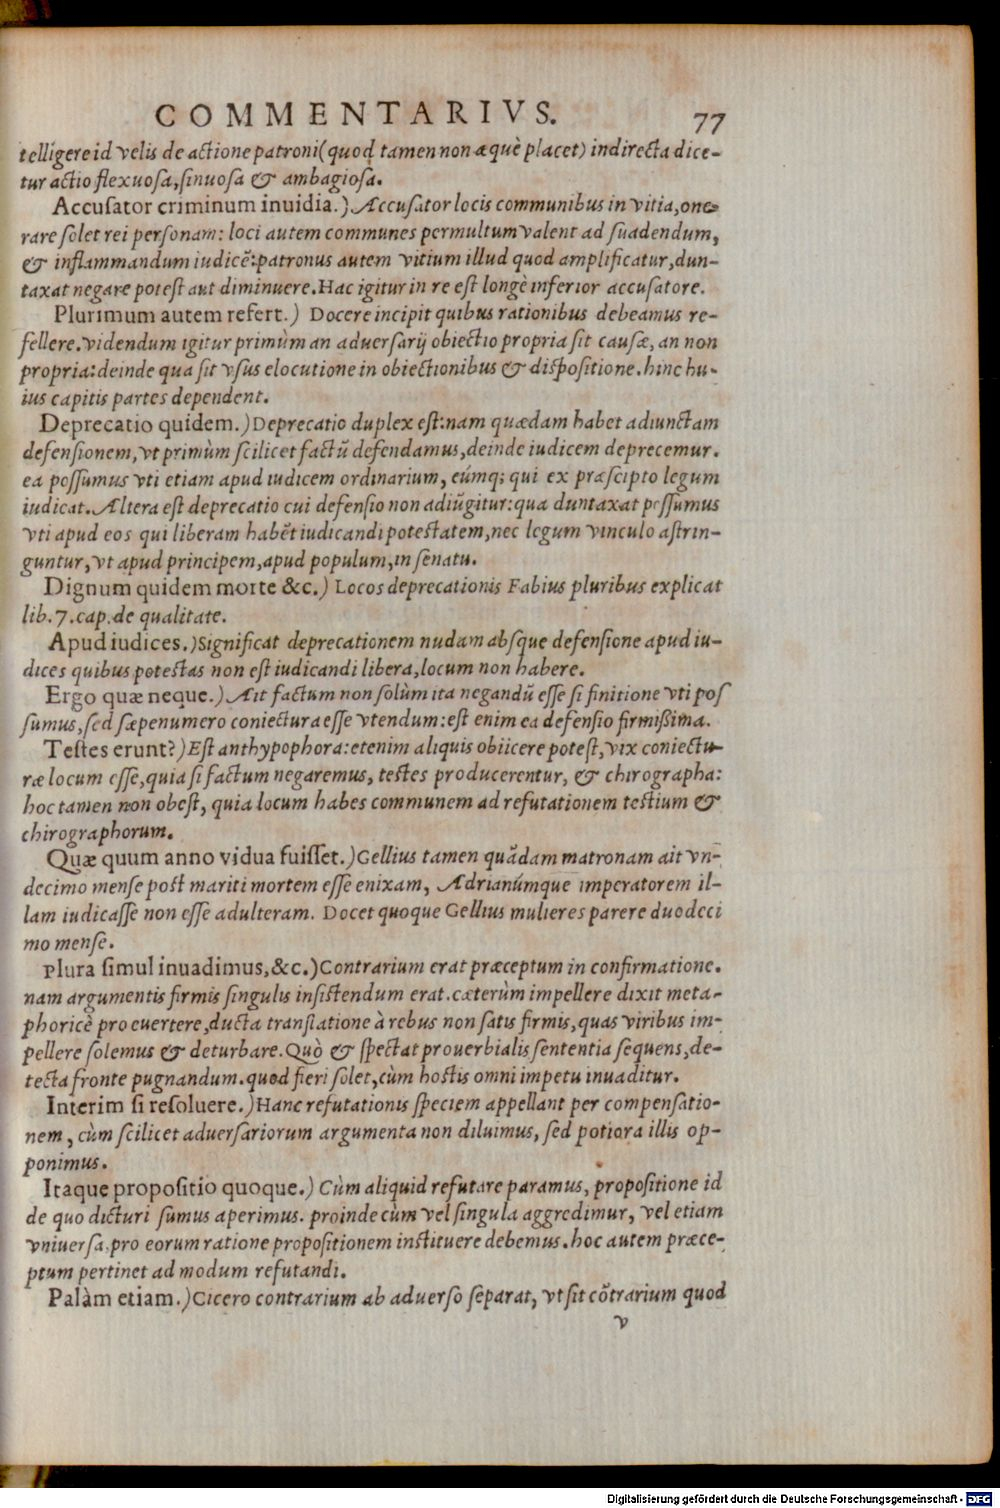 COMMENTARIVS. 77
telligere id velis de actione patroni (quod tamen non æquè placet) indirecta dice-
tur actio flexuosa, sinuosa & ambagiosa.
Accusator criminum inuidia.) Accusator locis communibus in vitia, one-
rare solet rei personam: loci autem communes permultum valent ad suadendum,
& inflammandum iudicē: patronus autem vitium illud quod amplificatur, dun-
taxat negare potest aut diminuere. Hac igitur in re est longè inferior accusatore.
Plurimum autem refert.) Docere incipit quibus rationibus debeamus re-
fellere. videndum igitur primùm an aduersarij obiectio propria sit causæ, an non
propria: deinde qua sit vsus elocutione in obiectionibus & dispositione. hinc hu-
ius capitis partes dependent.
Deprecatio quidem.) Deprecatio duplex est: nam quædam habet adiunctam
defensionem, vt primùm scilicet factū defendamus, deinde iudicem deprecemur.
ea possumus vti etiam apud iudicem ordinarium, eúmq; qui ex præscipto legum
iudicat. Altera est deprecatio cui defensio non adiūgitur: qua duntaxat possumus
vti apud eos qui liberam habēt iudicandi potestatem, nec legum vinculo astrin-
guntur, vt apud principem, apud populum, in senatu.
Dignum quidem morte &c.) Locos deprecationis Fabius pluribus explicat
lib. 7. cap. de qualitate.
Apud iudices.) Significat deprecationem nudam absque defensione apud iu-
dices quibus potestas non est iudicandi libera, locum non habere.
Ergo quæ neque.) Ait factum non solùm ita negandū esse si finitione vti pos
sumus, sed sæpenumero coniectura esse vtendum: est enim ea defensio firmißima.
Testes erunt?) Est anthypophora: etenim aliquis obiicere potest, vix coniectu-
ræ locum esse, quia si factum negaremus, testes producerentur, & chirographa:
hoc tamen non obest, quia locum habes communem ad refutationem testium &
chirographorum.
Quæ quum anno vidua fuisset.) Gellius tamen quādam matronam ait vn-
decimo mense post mariti mortem esse enixam, Adrianúmque imperatorem il-
lam iudicasse non esse adulteram. Docet quoque Gellius mulieres parere duodeci
mo mense.
Plura simul inuadimus, &c.) Contrarium erat præceptum in confirmatione.
nam argumentis firmis singulis insistendum erat. cæterùm impellere dixit meta-
phoricè pro euertere, ducta translatione à rebus non satis firmis, quas viribus im-
pellere solemus & deturbare. Quò & spectat prouerbialis sententia sequens, de-
tecta fronte pugnandum. quod fieri solet, cùm hostis omni impetu inuaditur.
Interim si resoluere.) Hanc refutationis speciem appellant per compensatio-
nem, cùm scilicet aduersariorum argumenta non diluimus, sed potiora illis op-
ponimus.
Itaque propositio quoque.) Cùm aliquid refutare paramus, propositione id
de quo dicturi sumus aperimus. proinde cùm vel singula aggredimur, vel etiam
vniuersa, pro eorum ratione propositionem instituere debemus. hoc autem præce-
ptum pertinet ad modum refutandi.
Palàm etiam.) Cicero contrarium ab aduerso separat, vt sit cōtrarium quod
v
Digitalisierung gefördert durch die Deutsche Forschungsgemeinschaft - DFG